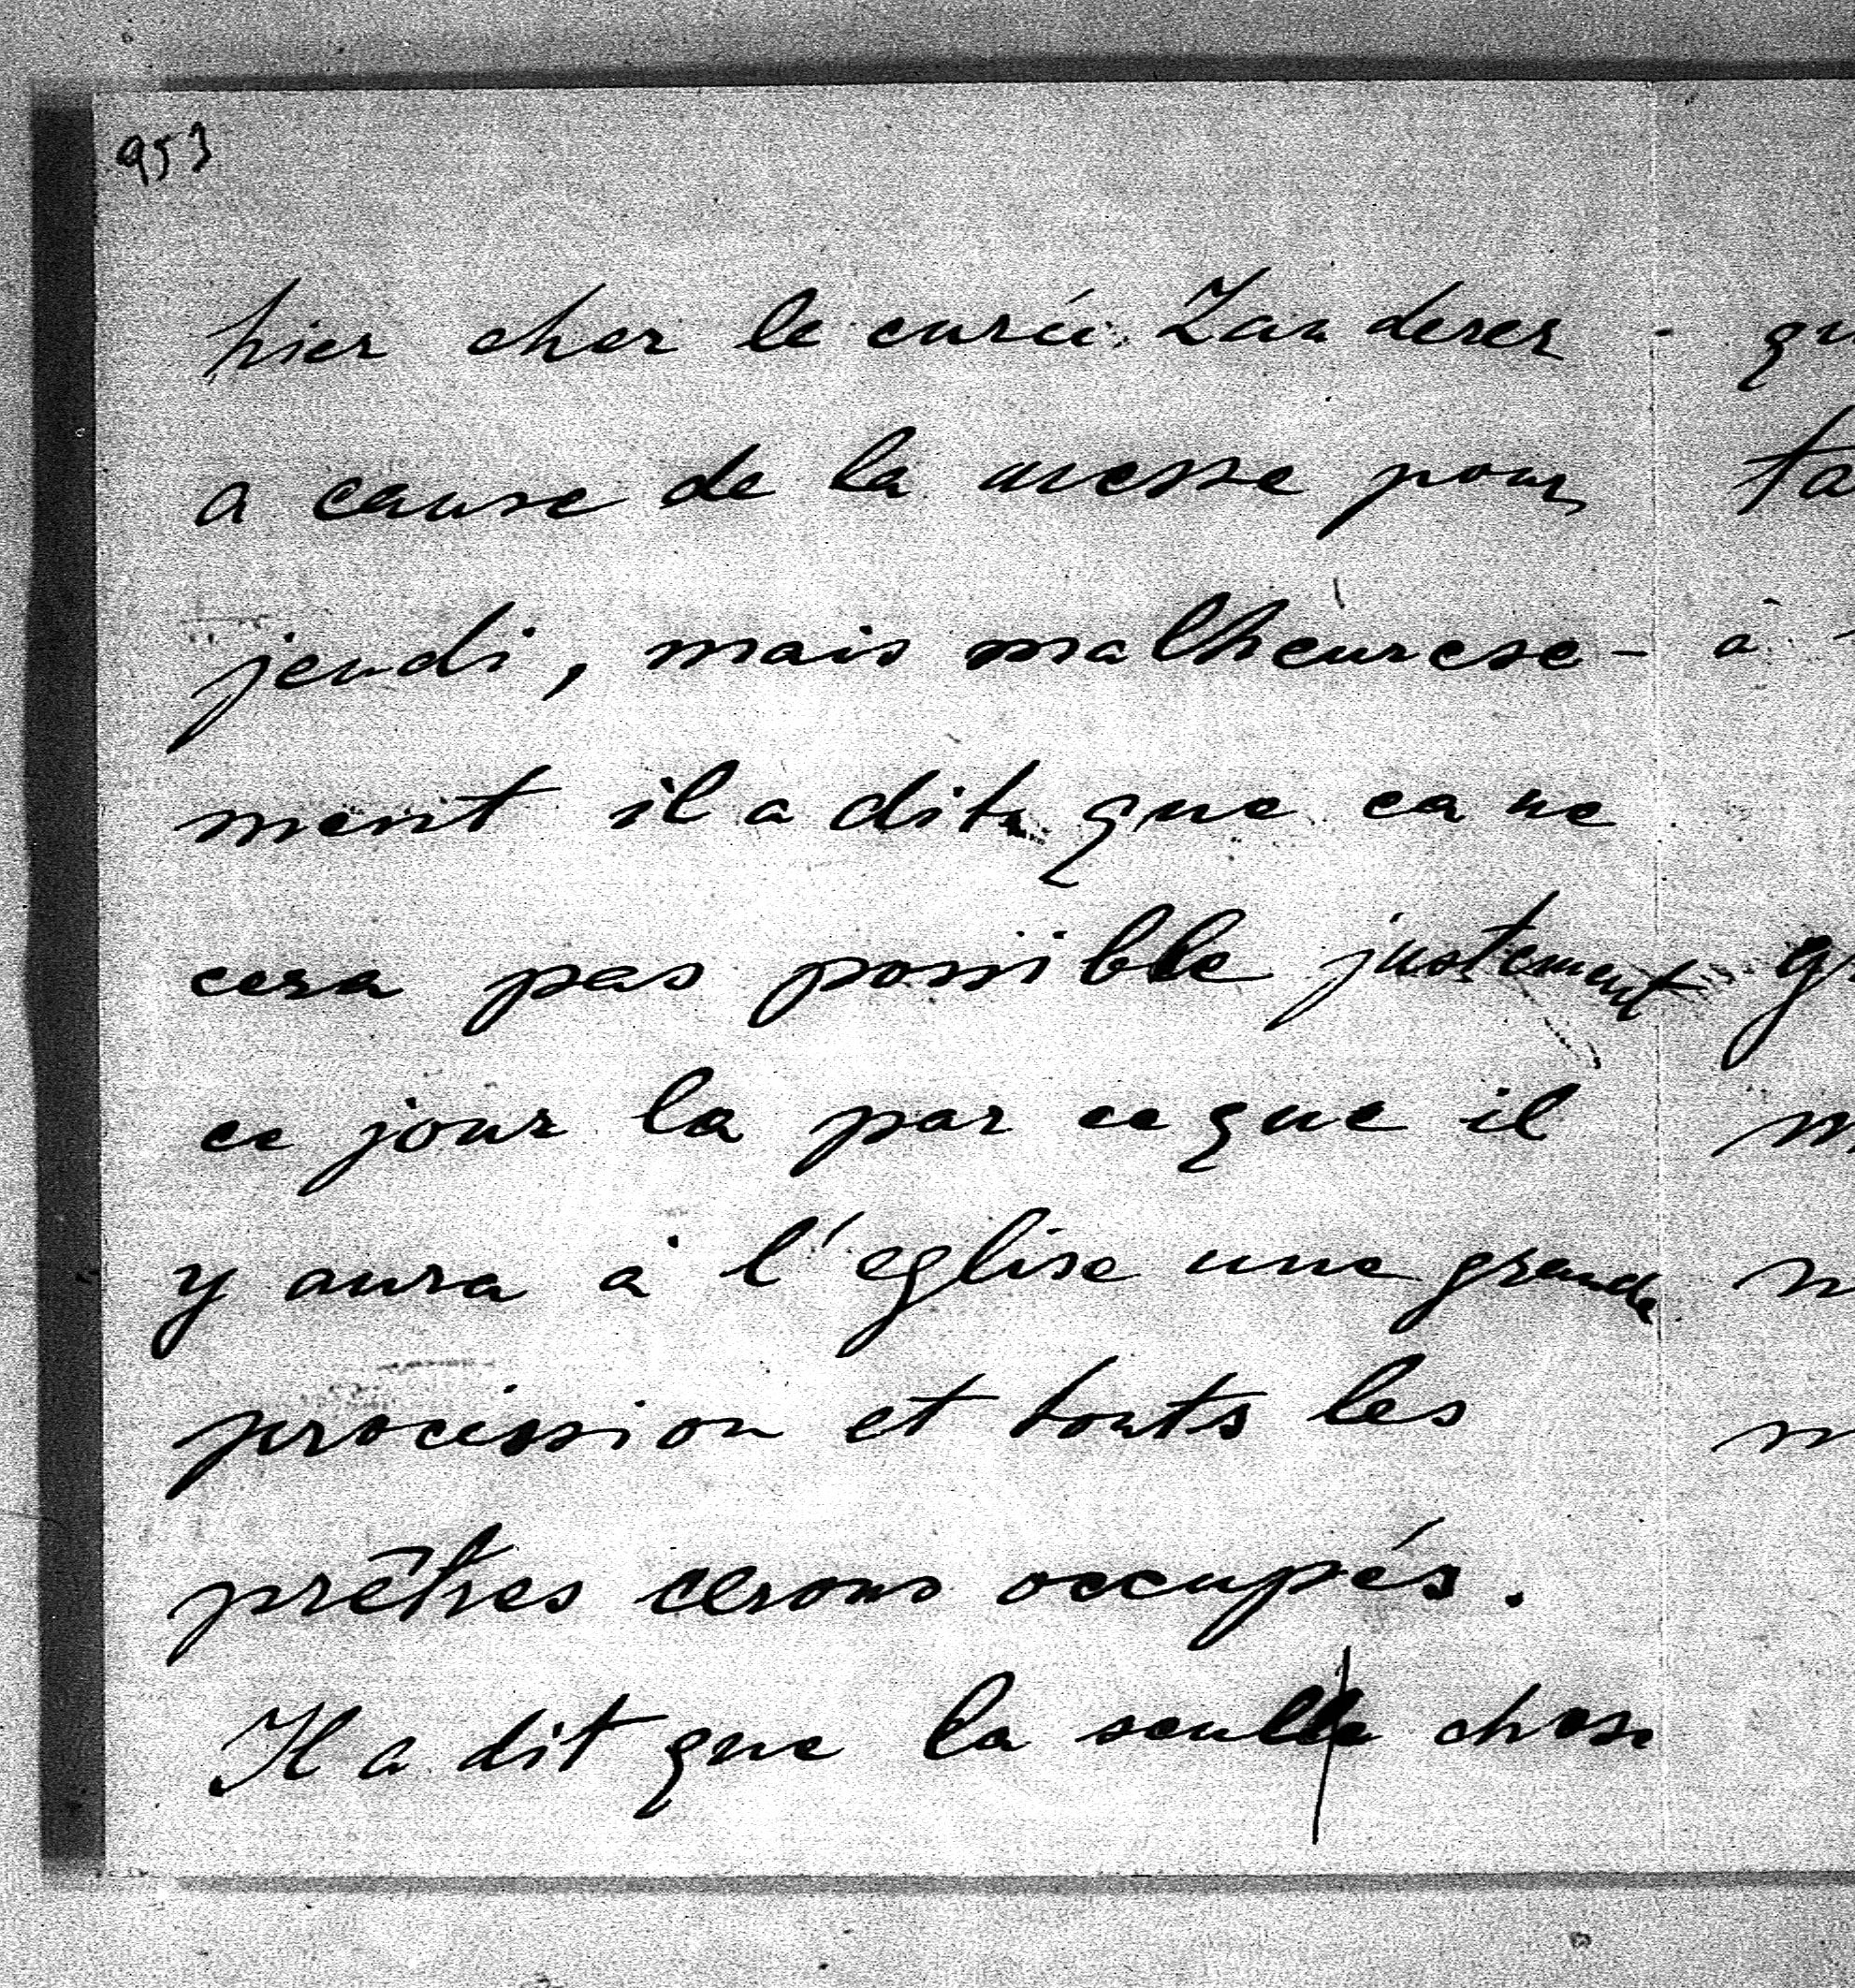 953
hier cher le curé Zanderer
a cause de la messe pour
jeudi, mais malheurese-
ment il a dit que ca ne
cera pas possible justement
ce jour la par ce que il
y aura à l'eglise une grande
procission et touts les
prêtres cerons occupés.
Il a dit que la seulle chose
qu
ta
à
gr
m
n
m